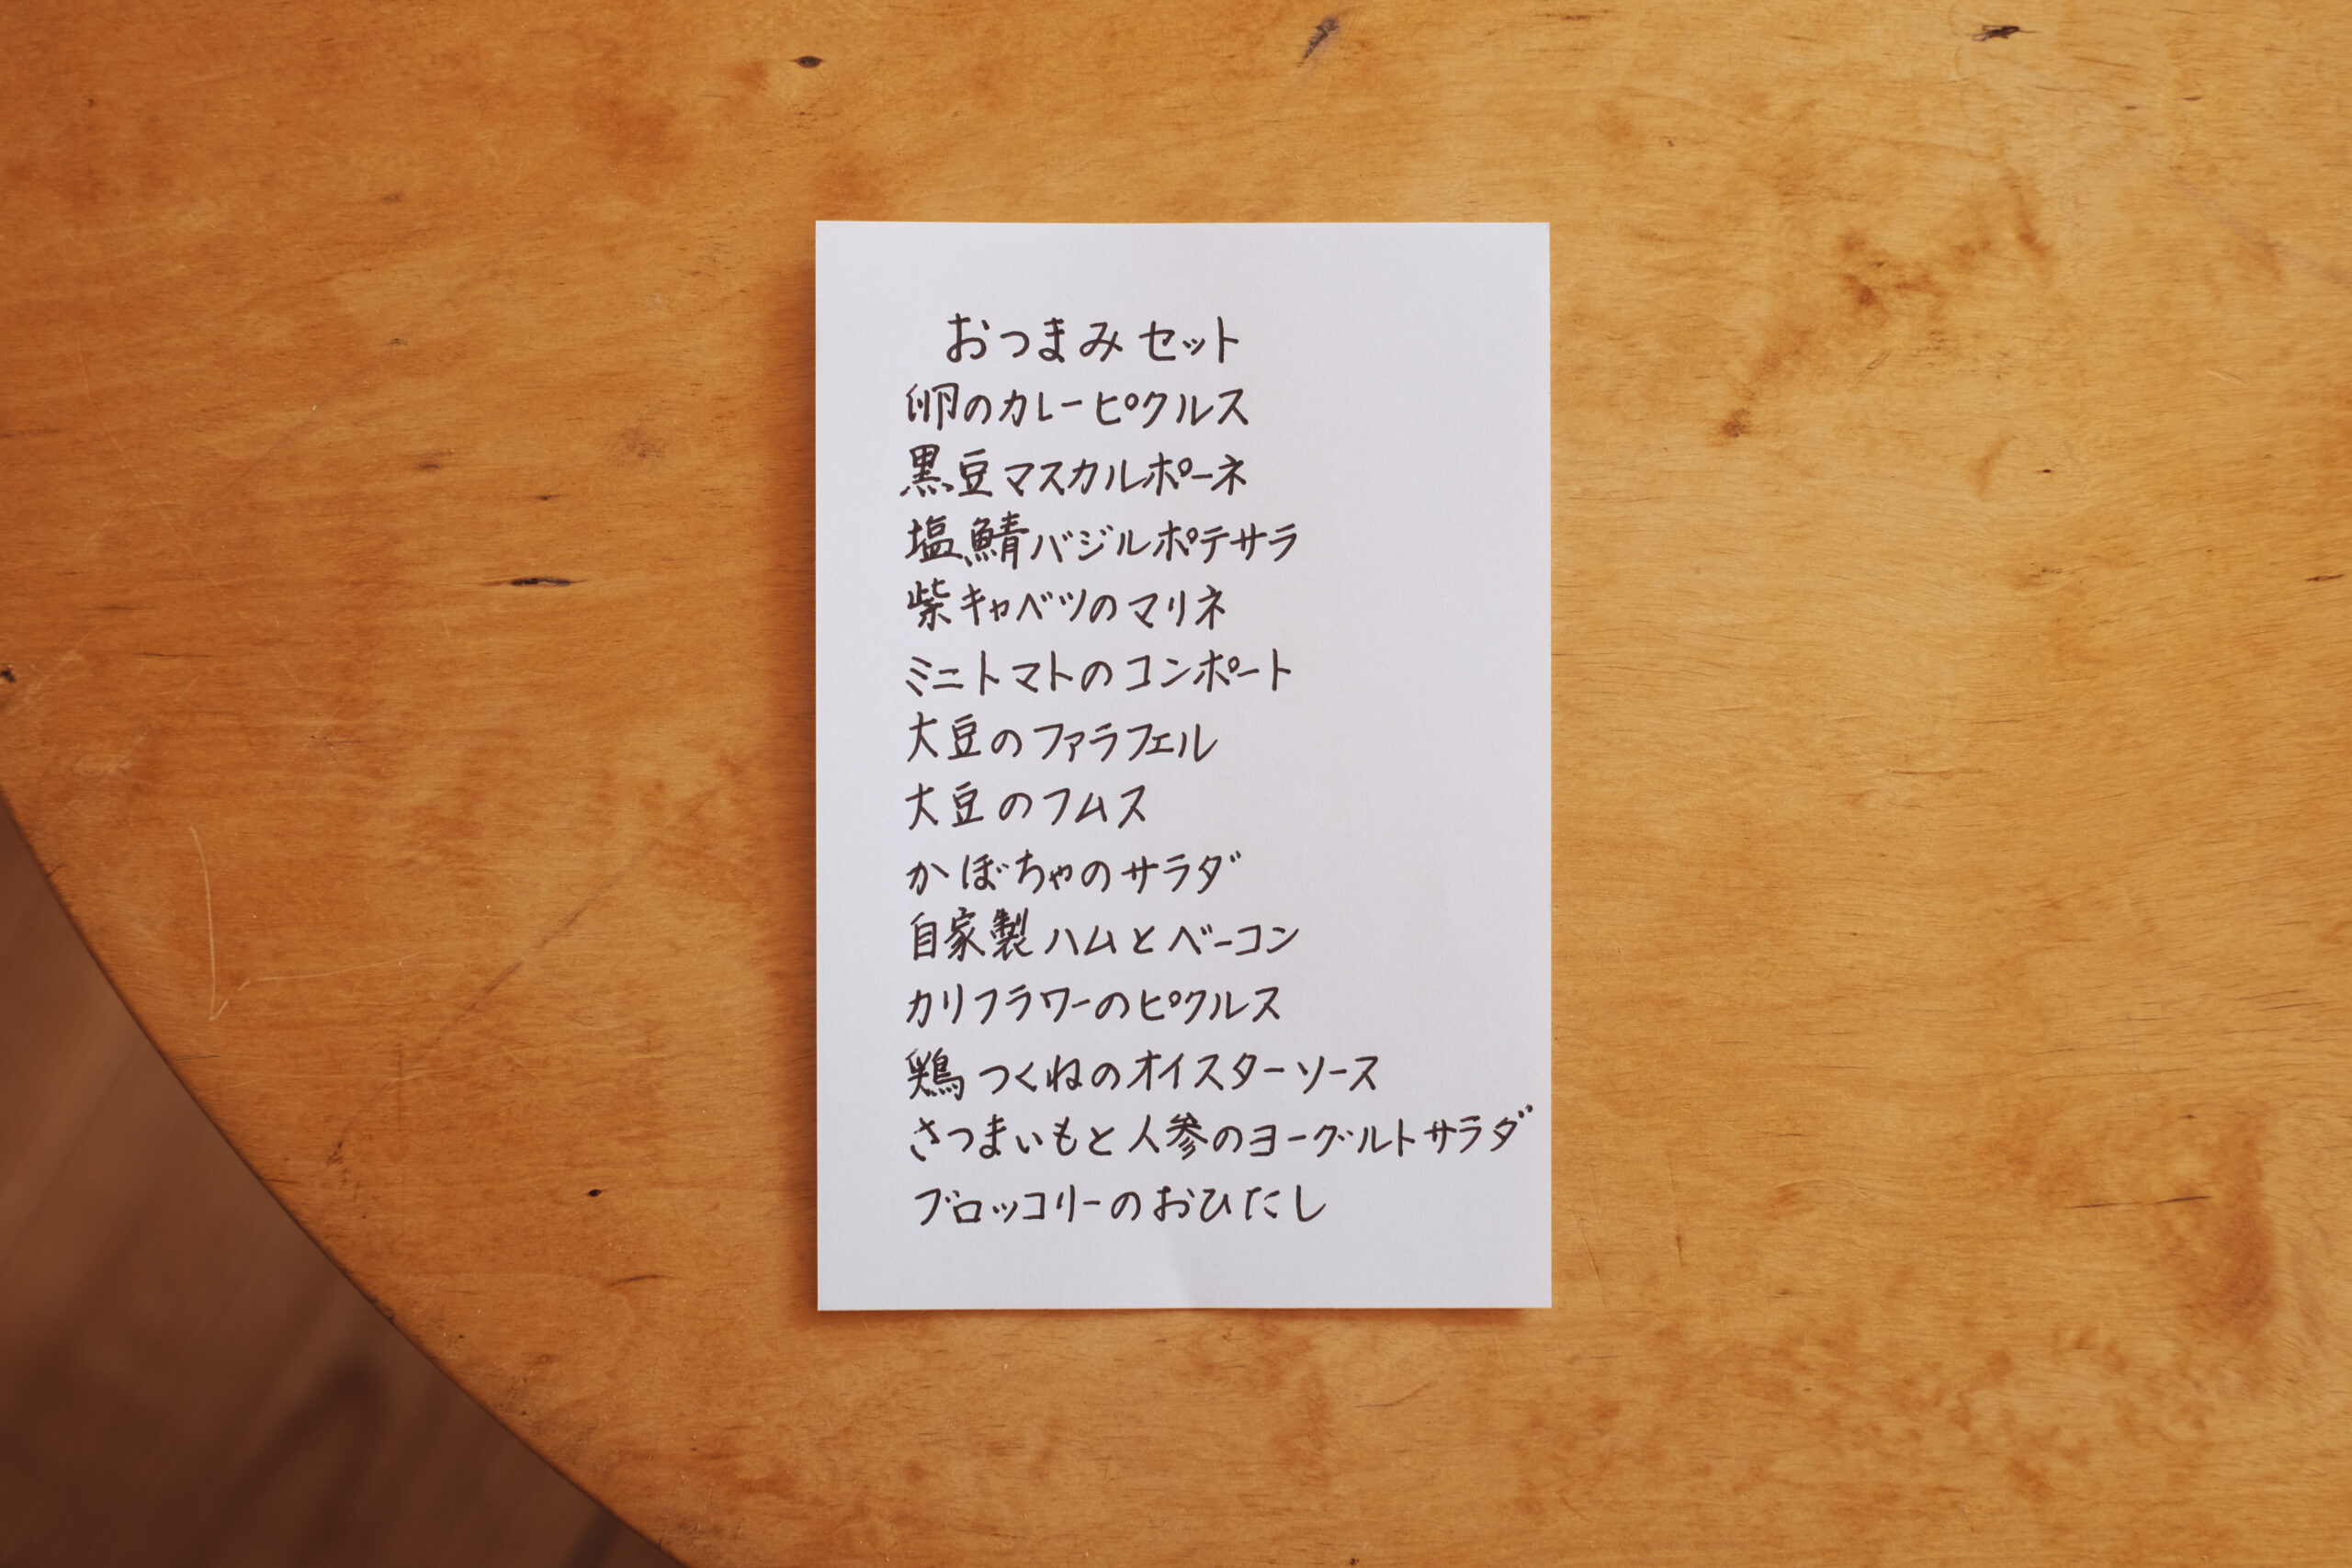 おつまみセット
卵のカレーピクルス
黒豆マスカルポーネ
塩鯖バジルポテサラ
紫キャベツのマリネ
ミニトマトのコンポート
大豆のファラフェル
大豆のフムス
かぼちゃのサラダ
自家製ハムとベーコン
カリフラワーのピクルス
鶏つくねのオイスターソース
さつまいもと人参のヨーグルトサラダ
ブロッコリーのおひたし